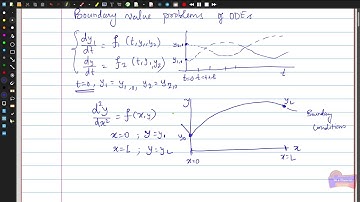 Boundary value problems of ODEs
dy₁/dt = f₁ (t, y₁, y₂)
dy₂/dt = f₂ (t, y₁, y₂)
t=0, y₁ = y₁,₀, y₂ = y₂,₀
y₂,₀
y₁,₀
t=0
t
d²y/dx² = f(x,y)
x=0 ; y=y₀
x=L ; y=y_L
y
y₀
y_L
Boundary
Conditions
x=0
x=L
x